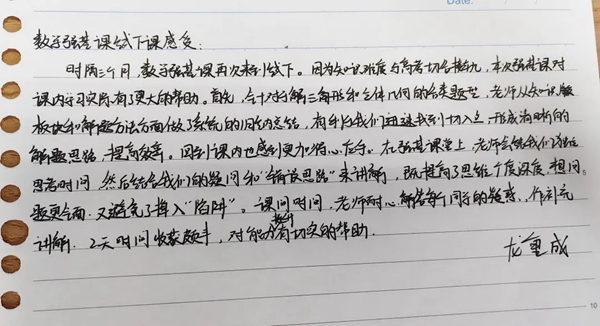 Date:
数学强基课线下课感受：
时隔三个月，数学强基课再次来到线下。因为知识难度与高考切合接轨，本次强基课对
课内学习实际有了更大的帮助。首先，针对解三角形和立体几何的各类题型，老师从知识
板块和解题方法方面做了系统的归纳总结，有利于我们迅速找到切入点，形成清晰的
解题思路，提高效率。回到课内也感到更加得心应手。在强基课堂上，老师会给我们独立
思考时间，然后结合我们的疑问和“错误思路”来讲解，既提高了思维广度深度，想问
题更全面，又避免了掉入“陷阱”。课间时间，老师耐心解答每个同学的疑惑，作补充
讲解。2天时间收获颇丰，对能力提升有切实的帮助。
龙重成
10